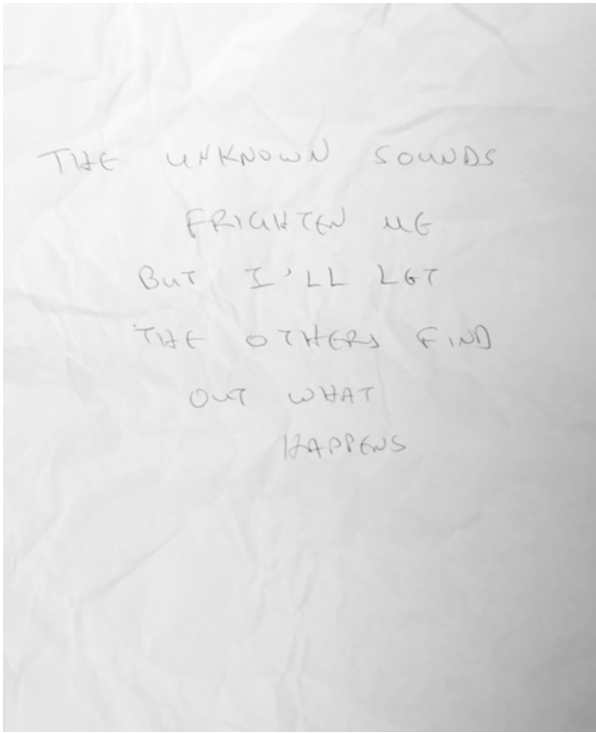 THE UNKNOWN SOUNDS
FRIGHTEN ME
BUT I'LL LET
THE OTHERS FIND
OUT WHAT
HAPPENS